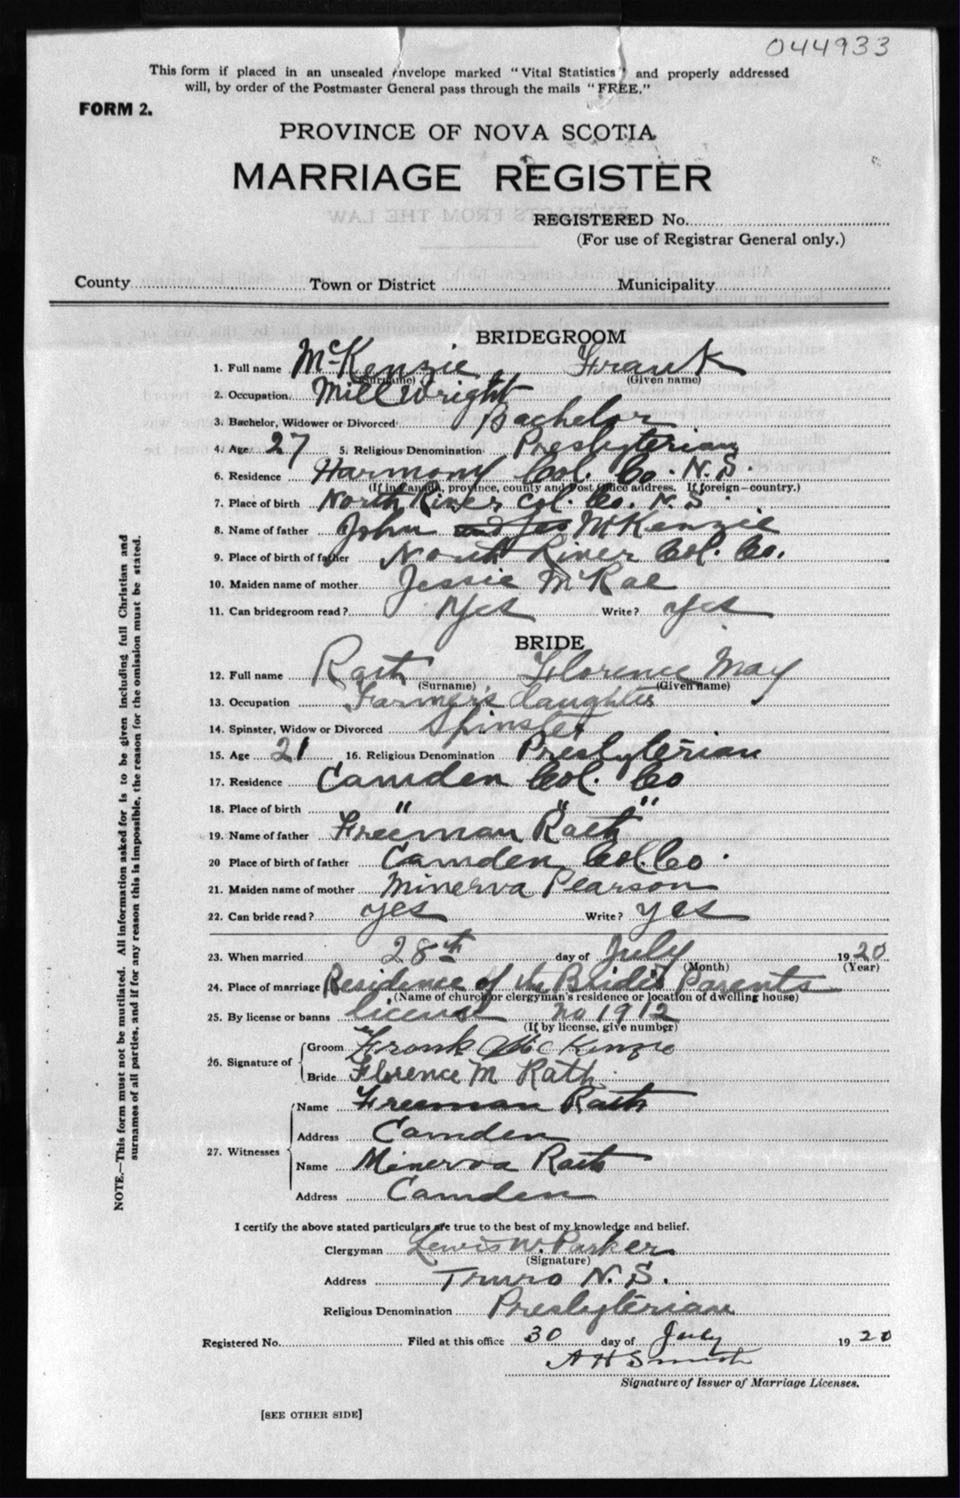 044933
This form if placed in an unsealed envelope marked "Vital Statistics" and properly addressed
will, by order of the Postmaster General pass through the mails "FREE."
FORM 2.
PROVINCE OF NOVA SCOTIA
MARRIAGE REGISTER
REGISTERED No.
(For use of Registrar General only.)
County Town or District Municipality
BRIDEGROOM
1. Full name McKenzie Frank
(Surname) (Given name)
2. Occupation Mill Wright
3. Bachelor, Widower or Divorced Bachelor
4. Age 27 5. Religious Denomination Presbyterian
6. Residence Harmony Col. Co. N.S.
(If in Canada, province, county and post office address. If foreign—country.)
7. Place of birth North River Col. Co. N.S.
8. Name of father John McKenzie
9. Place of birth of father North River Col. Co.
10. Maiden name of mother Jessie McRae
11. Can bridegroom read? Yes Write? yes
BRIDE
12. Full name Rath Florence May
(Surname) (Given name)
13. Occupation Farmer's daughter
14. Spinster, Widow or Divorced Spinster
15. Age 21 16. Religious Denomination Presbyterian
17. Residence Camden Col. Co
18. Place of birth " " "
19. Name of father Freeman Rath
20 Place of birth of father Camden Col. Co.
21. Maiden name of mother Minerva Pearson
22. Can bride read? yes Write? yes
23. When married 28th day of July 1920
(Month) (Year)
24. Place of marriage Residence of the Bride's Parents
(Name of church or clergyman's residence or location of dwelling house)
25. By license or banns license no 1912
(If by license, give number)
26. Signature of Groom Frank McKenzie
Bride Florence M Rath
27. Witnesses Name Freeman Rath
Address Camden
Name Minerva Rath
Address Camden
I certify the above stated particulars are true to the best of my knowledge and belief.
Clergyman Lewis W. Parker
(Signature)
Address Truro N.S.
Religious Denomination Presbyterian
Registered No. Filed at this office 30 day of July 1920
A H Smith
Signature of Issuer of Marriage Licenses.
[SEE OTHER SIDE]
NOTE.—This form must not be mutilated. All information asked for is to be given including full Christian and
surnames of all parties, and if for any reason this is impossible, the reason for the omission must be stated.